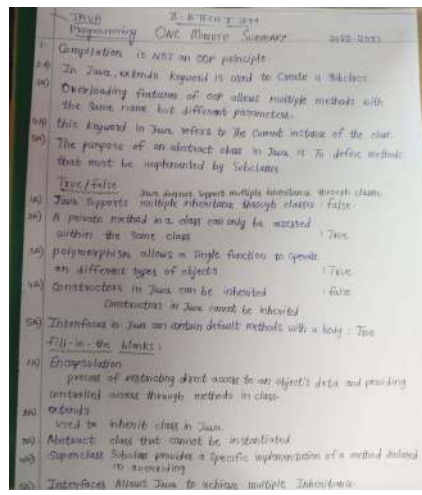 JAVA
Programming
II-BTECH I SEM
ONE MINUTE SUMMARY
Compilation is NOT an OOP principle.
In Java, extends keyword is used to create a subclass.
Overloading features of OOP allows multiple methods with
the same name but different parameters.
this keyword in Java refers to the current instance of the class.
The purpose of an abstract class in Java is To define methods
that must be implemented by Subclasses
True/false
Java doesnot support multiple inheritance through classes.
Java supports multiple inheritance through classes : false.
A private method in a class can only be accessed
within the same class : True
polymorphism allows a single function to operate
on different types of objects : True
Constructors in Java can be inherited : false
Constructors in Java cannot be inherited
5A) Interfaces in Java can contain default methods with a body : True
Fill-in-the blanks:
Encapsulation
process of restricting direct access to an object's data, and providing
controlled access through methods in class.
extends
used to inherit class in Java.
Abstract class that cannot be instantiated
Superclass Subclass provides a specific implementation of a method declared
in overriding
Interfaces Allows Java to achieve multiple Inheritance.